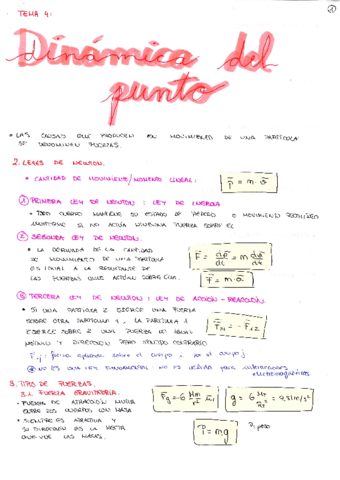 1
TEMA 4:
Dinámica del
punto
• LAS CAUSAS QUE PRODUCEN EL MOVIMIENTO DE UNA PARTÍCULA
SE DENOMINAN FUERZAS.
2. LEYES DE NEWTON.
• CANTIDAD DE MOVIMIENTO/MOMENTO LINEAL:
p = m · v
① PRIMERA LEY DE NEWTON: LEY DE INERCIA
• TODO CUERPO MANTIENE SU ESTADO DE REPOSO O MOVIMIENTO RECTILÍNEO
UNIFORME SI NO ACTÚA NINGUNA FUERZA SOBRE ÉL
② SEGUNDA LEY DE NEWTON:
• LA DERIVADA DE LA CANTIDAD
DE MOVIMIENTO DE UNA PARTÍCULA
ES IGUAL A LA RESULTANTE DE
LAS FUERZAS QUE ACTÚAN SOBRE ELLA.
F = dp/dt = m dv/dt
F = m · a
③ TERCERA LEY DE NEWTON: LEY DE ACCIÓN - REACCIÓN.
• SI UNA PARTÍCULA 2 EJERCE UNA FUERZA
SOBRE OTRA PARTÍCULA 1, LA PARTÍCULA 1
EJERCE SOBRE 2 UNA FUERZA DE IGUAL
MÓDULO Y DIRECCIÓN PERO SENTIDO CONTRARIO
F21 = - F12
Fij: fuerza ejercida sobre el cuerpo i por el cuerpo j
NO ES UNA LEY FUNDAMENTAL: NO ES VÁLIDA para interacciones
electromagnéticas
3. TIPOS DE FUERZAS.
3.1. FUERZA GRAVITATORIA.
• FUERZA DE ATRACCIÓN MUTUA
ENTRE DOS CUERPOS CON MASA
• SIEMPRE ES ATRACTIVA Y
SU DIRECCIÓN ES LA RECTA
QUE UNE LAS MASAS.
Fg = G Mm/r² ur
g = G MT/RT² = 9.81 m/s²
P = mg
P: peso